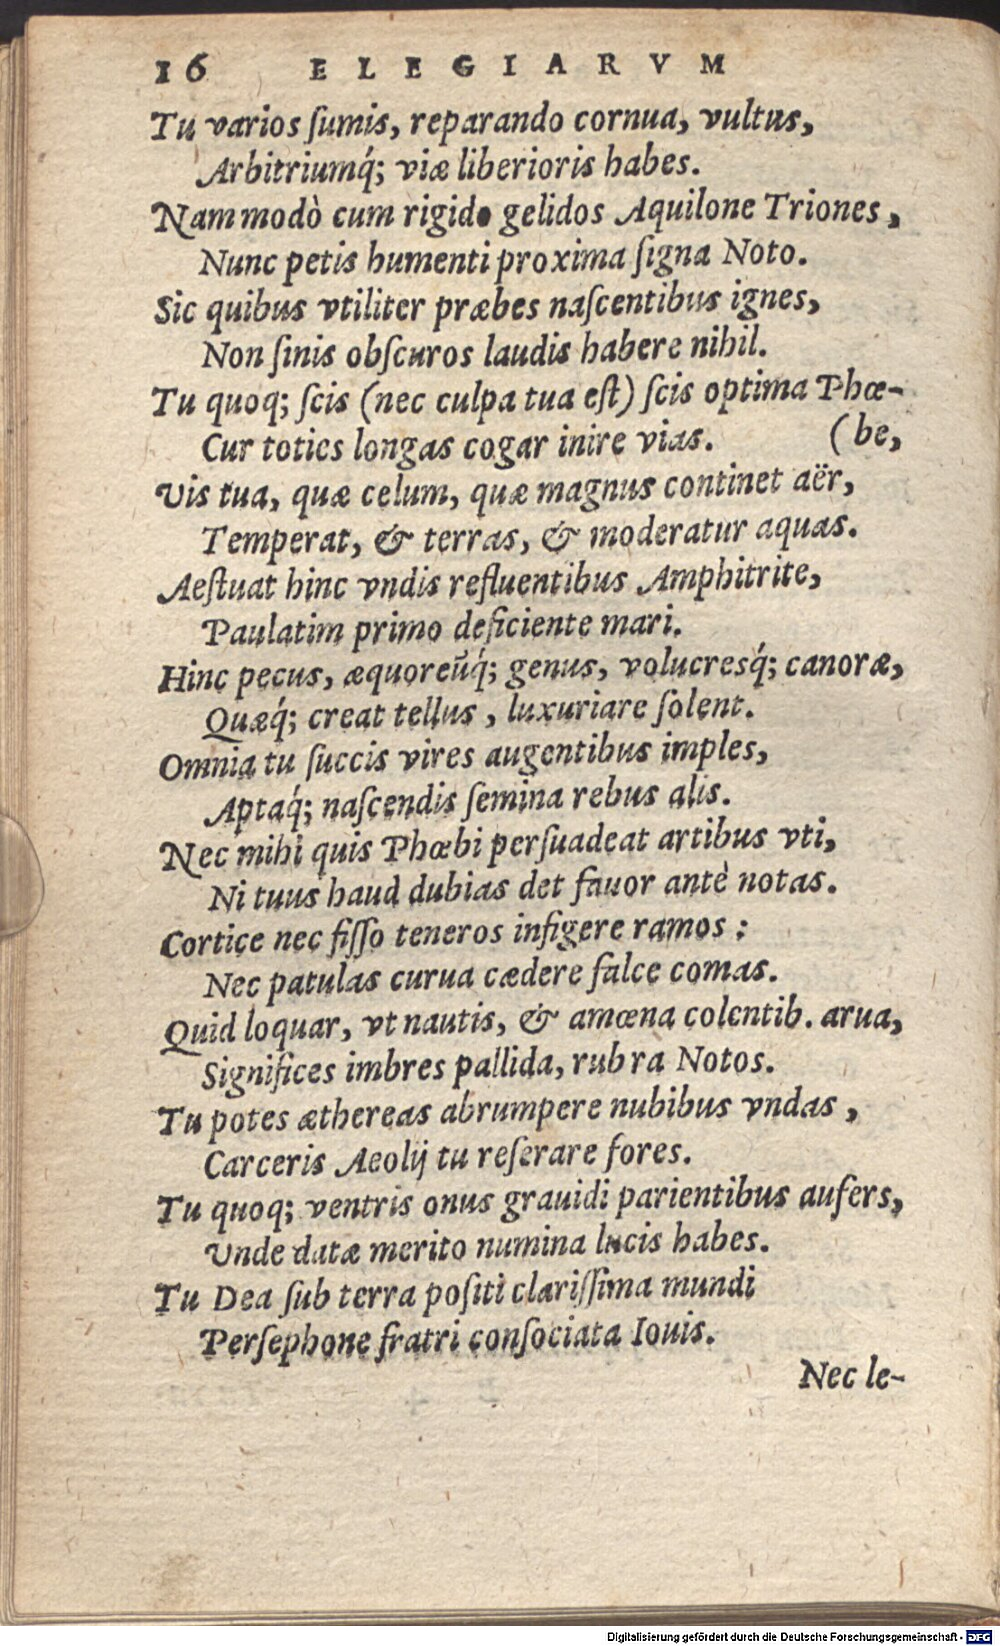 16 ELEGIARVM
Tu varios ſumis, reparando cornua, vultus,
Arbitriumq́; viæ liberioris habes.
Nam modò cum rigido gelidos Aquilone Triones,
Nunc petis humenti proxima ſigna Noto.
Sic quibus vtiliter præbes naſcentibus ignes,
Non ſinis obſcuros laudis habere nihil.
Tu quoq; ſcis (nec culpa tua eſt) ſcis optima Phœ-
Cur toties longas cogar inire vias. (be,
Vis tua, quæ celum, quæ magnus continet aër,
Temperat, & terras, & moderatur aquas.
Aeſtuat hinc vndis refluentibus Amphitrite,
Paulatim primo deficiente mari.
Hinc pecus, æquoreũq́; genus, volucresq́; canoræ,
Quæq́; creat tellus, luxuriare ſolent.
Omnia tu ſuccis vires augentibus imples,
Aptaq́; naſcendis ſemina rebus alis.
Nec mihi quis Phœbi perſuadeat artibus vti,
Ni tuus haud dubias det fauor antè notas.
Cortice nec fiſſo teneros infigere ramos:
Nec patulas curua cædere falce comas.
Quid loquar, vt nautis, & amœna colentib. arua,
Significes imbres pallida, rubra Notos.
Tu potes æthereas abrumpere nubibus vndas,
Carceris Aeolij tu reſerare fores.
Tu quoq; ventris onus grauidi parientibus aufers,
Vnde datæ merito numina lucis habes.
Tu Dea ſub terra poſiti clariſſima mundi
Perſephone fratri conſociata Iouis.
Nec le-
Digitalisierung gefördert durch die Deutsche Forschungsgemeinschaft - DFG